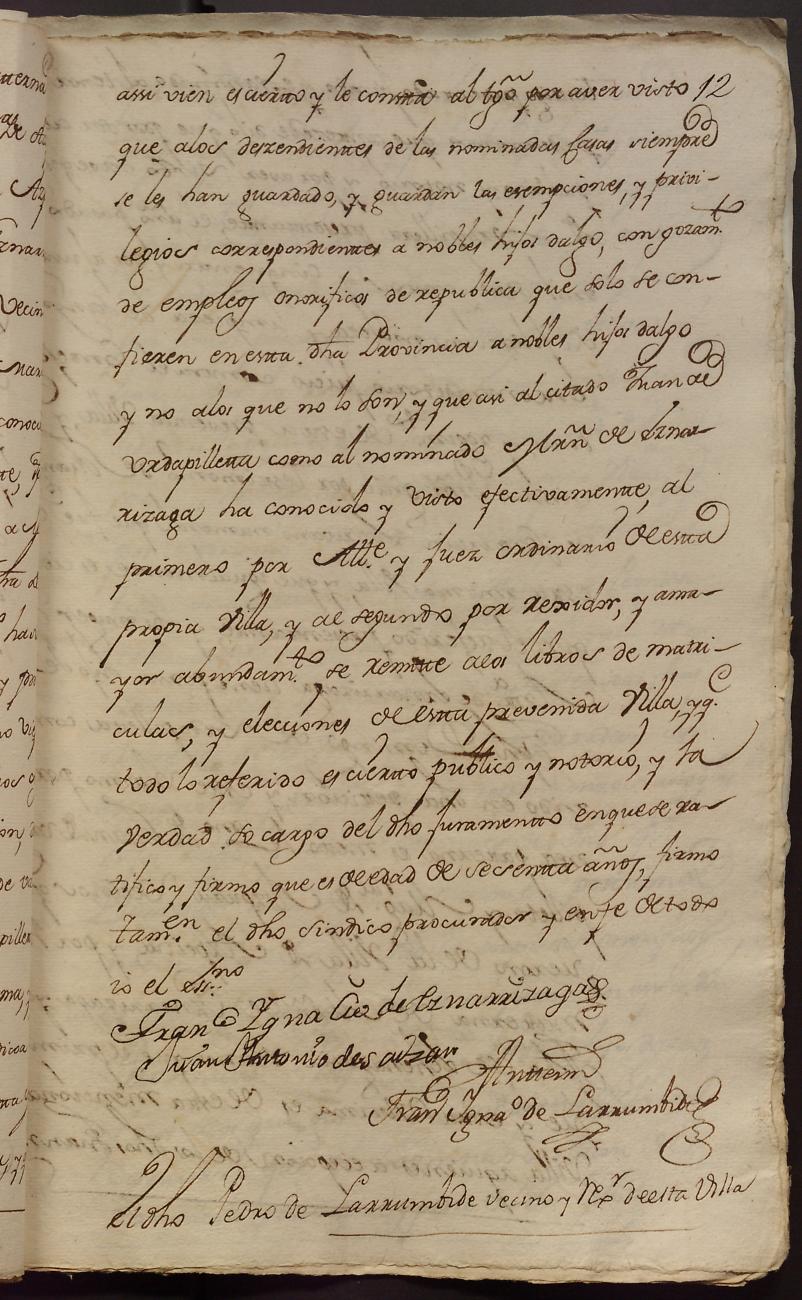 assi vien es cierto y le consta al tgō por aver visto 12
que alos deszendientes de las nominadas casas siempre
se les han guardado, y guardan las esempciones, y privi-
legios correspondientes a nobles hijos dalgo, con gozam.to
de empleos onorificos de republica que solo se con-
fieren en esta dha Provincia a nobles hijos dalgo
y no alos que no lo son, y que asi al citado Juan de
Urdapilletta como al nominado Mrñ de Eznar-
rizaga ha conocido y visto efectivamente, al
primero por Alle. y juez ordinario de esta
propia Villa, y al segundo por rexidor, y ama-
yor abundam.to se remite alos libros de matri-
culas, y elecciones de esta prevenida Villa, y q.e
todo lo referido es cierto publico y notorio, y la
verdad so cargo del dho juramento en que se ra-
tifico y firmo que es de edad de sesenta años, firmo
tam.en el dho sindico procurador y en fe de todo
io el Ss.no
Fran.co Ygnacio de Eznarrizaga
Juan Antonio de
Antemi
Fran.co Ygna.o de Larrumbide
El dho Pedro de Larrumbide vecino y Rex.r de esta Villa